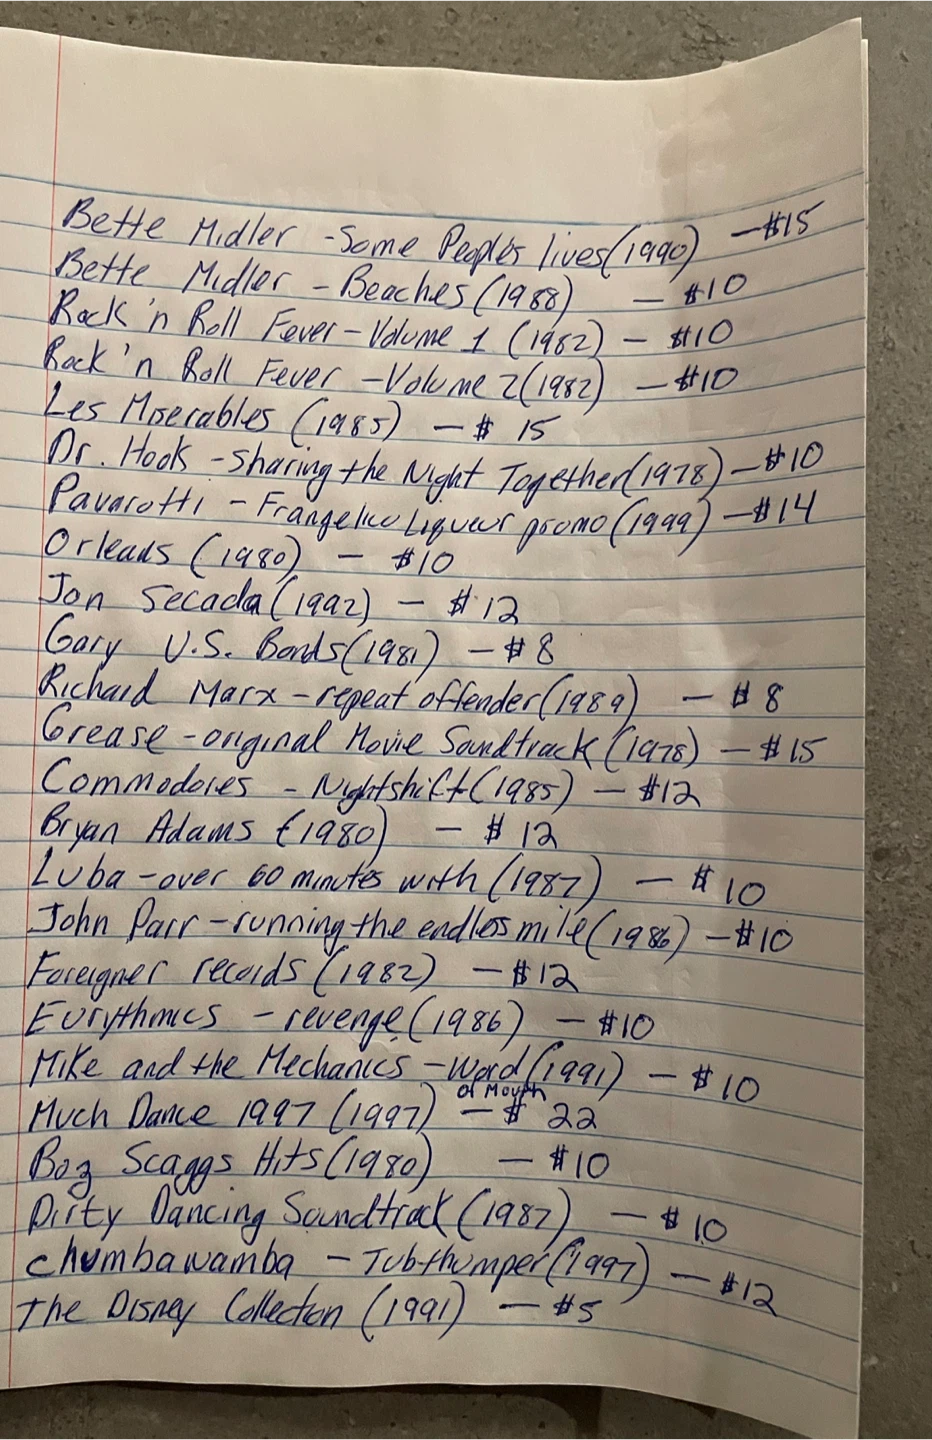 Bette Midler - Some People's lives (1990) - $15
Bette Midler - Beaches (1988) - $10
Rock 'n Roll Fever - Volume 1 (1982) - $10
Rock 'n Roll Fever - Volume 2 (1982) - $10
Les Miserables (1985) - $ 15
Dr. Hook - Sharing the Night Together (1978) - $10
Pavarotti - Frangelico Liqueur promo (1999) - $14
Orleads (1980) - $10
Jon Secada (1992) - $ 12
Gary U.S. Bonds (1981) - $ 8
Richard Marx - repeat offender (1989) - $ 8
Grease - original Movie Soundtrack (1978) - $15
Commodores - Nightshift (1985) - $12
Bryan Adams (1980) - $ 12
Luba - over 60 minutes with (1987) - $ 10
John Parr - running the endless mile (1986) - $10
Foreigner records (1982) - $12
Eurythmics - revenge (1986) - $10
Mike and the Mechanics - Word (1991) - $ 10
of Mouth
Much Dance 1997 (1997) - $ 22
Boz Scaggs Hits (1980) - $10
Dirty Dancing Soundtrack (1987) - $ 10
Chumbawamba - Tubthumper (1997) - $12
The Disney Collection (1991) - $5